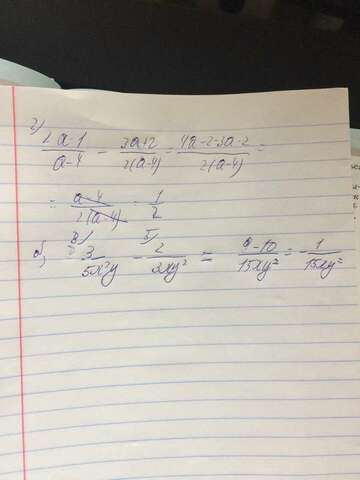 2) (2a-1)/(a-4) - (3a+2)/(2(a-4)) = (4a-2-3a-2)/(2(a-4)) =
= (a-4)/(2(a-4)) = 1/2
б) 3/(5x²y) - 2/(3xy²) = (9-10)/(15xy²) = 1/(15xy²)